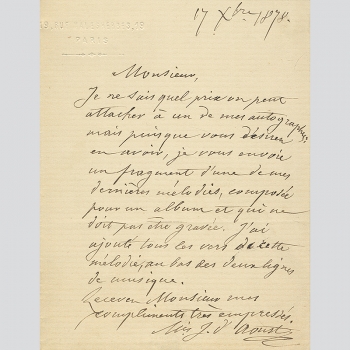 17 Xbre 1878.
Monsieur,
Je ne sais quel prix on peut
attacher à un de mes autographes,
mais puisque vous désirez
en avoir, je vous envoie
un fragment d'une de mes
dernières mélodies, composée
pour un album et qui ne
doit pas être gravée. J'ai
ajouté tous les vers de cette
mélodie, au bas des deux lignes
de musique.
Recevez Monsieur mes
compliments très empressés.
J. d'Aoust